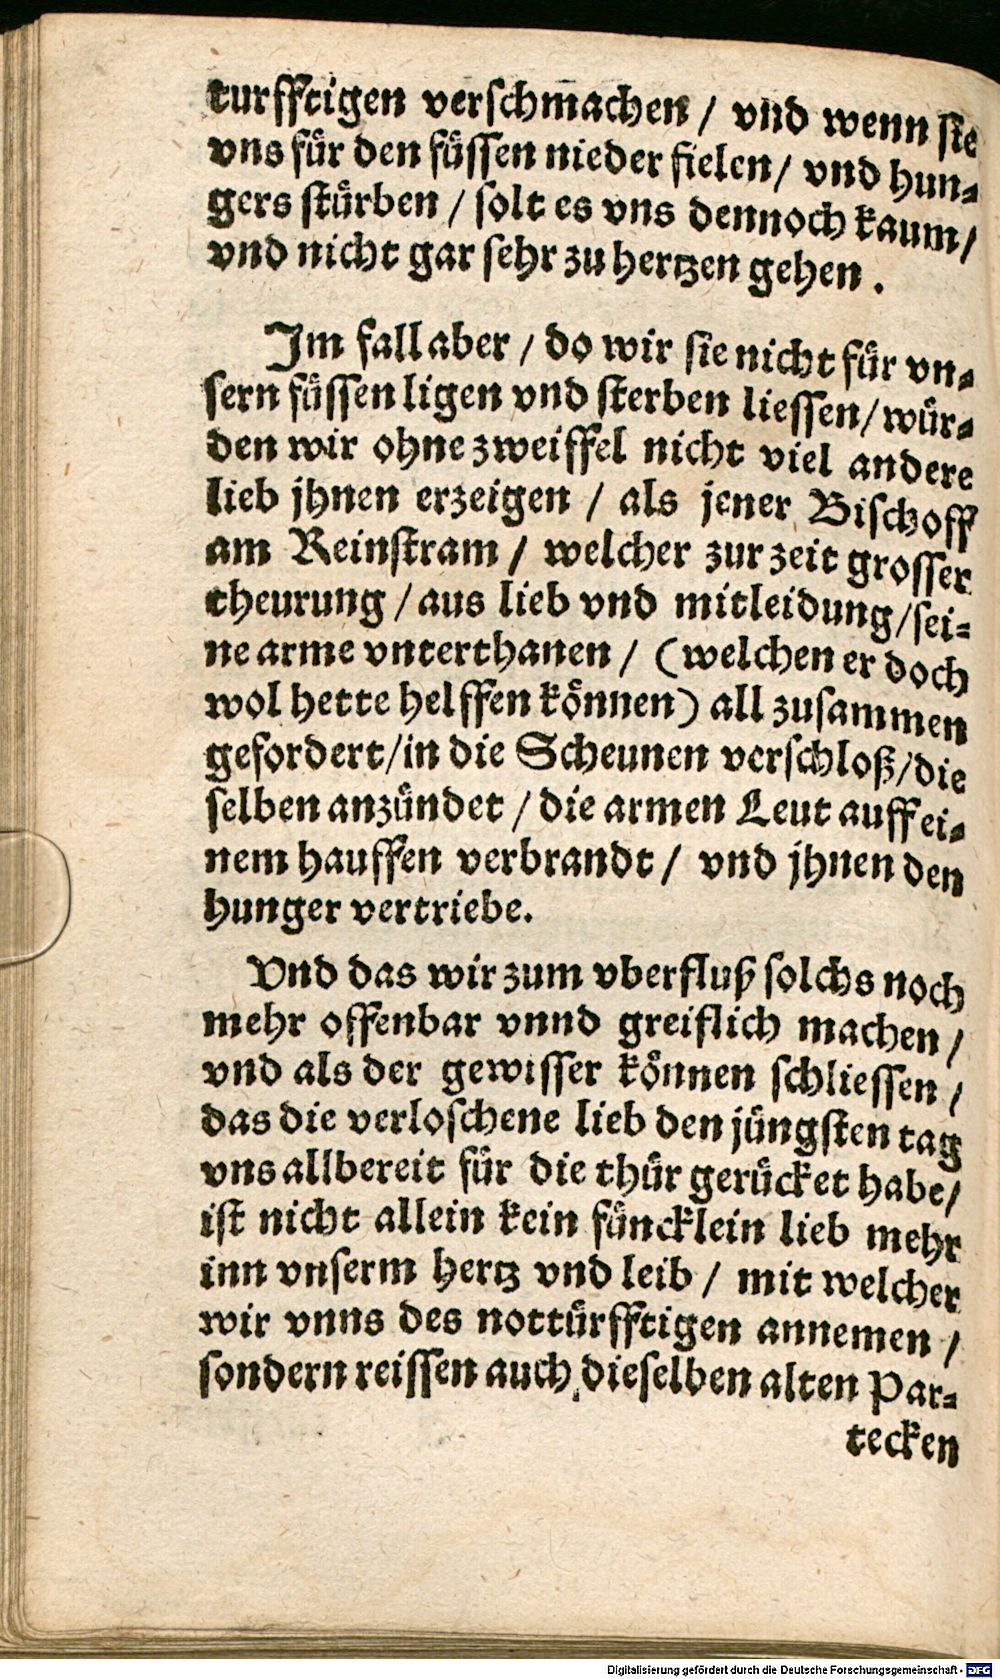 turfftigen verschmachen / vnd wenn sie
vns für den füssen nieder fielen / vnd hun⸗
gers stürben / solt es vns dennoch kaum /
vnd nicht gar sehr zu hertzen gehen .
Im fall aber / do wir sie nicht für vn⸗
sern füssen ligen vnd sterben liessen / wür⸗
den wir ohne zweiffel nicht viel andere
lieb jhnen erzeigen / als jener Bischoff
am Reinstram / welcher zur zeit grosser
theurung / aus lieb vnd mitleidung / sei⸗
ne arme vnterthanen / (welchen er doch
wol hette helffen können) all zusammen
gefordert / in die Scheunen verschloß / die
selben anzündet / die armen Leut auff ei⸗
nem hauffen verbrandt / vnd jhnen den
hunger vertriebe.
Vnd das wir zum vberfluß solchs noch
mehr offenbar vnnd greiflich machen /
vnd als der gewisser können schliessen /
das die verloschene lieb den jüngsten tag
vns allbereit für die thür gerücket habe /
ist nicht allein kein füncklein lieb mehr
inn vnserm hertz vnd leib / mit welcher
wir vnns des nottürfftigen annemen /
sondern reissen auch dieselben alten Par⸗
tecken
Digitalisierung gefördert durch die Deutsche Forschungsgemeinschaft - DFG